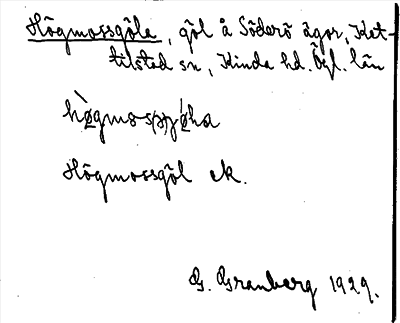 Högmossgöle, göl å Söderö ägor, Ket-
tilstad sn, Kinda hd. Ögl. län
Högmossgöl ek.
G. Granberg 1929.